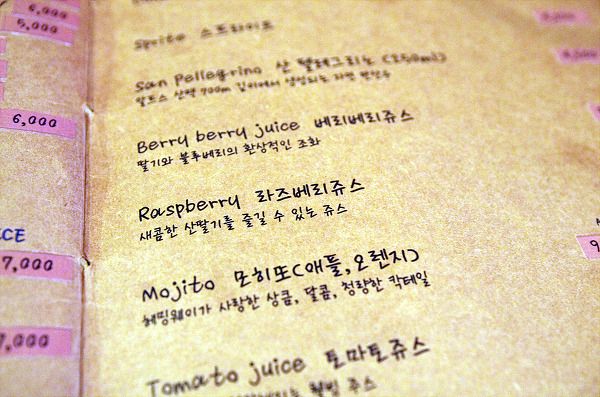 6,000
5,000
6,000
CE
7,000
7,000
Sprite 스프라이트
San Pellegrino 산 펠레그리노 (250ml)
알프스 산맥 700m 깊이에서 생성되는 자연 탄산수
Berry berry juice 베리베리쥬스
딸기와 블루베리의 환상적인 조화
Raspberry 라즈베리쥬스
새콤한 산딸기를 즐길 수 있는 쥬스
Mojito 모히또(애플,오렌지)
헤밍웨이가 사랑한 상콤, 달콤, 청량한 칵테일
Tomato juice 토마토쥬스
웰빙 주스